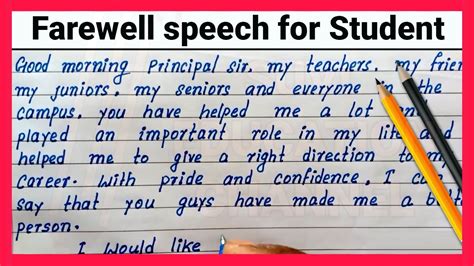 Farewell speech for Student
Good morning Principal sir. my teachers. my frien
my juniors. my seniors and everyone in the
campus. you have helped me a lot and
played an important role in my life and
helped me to give a right direction to my
career. With pride and confidence. I can
say that you guys have made me a bett
person.
I would like